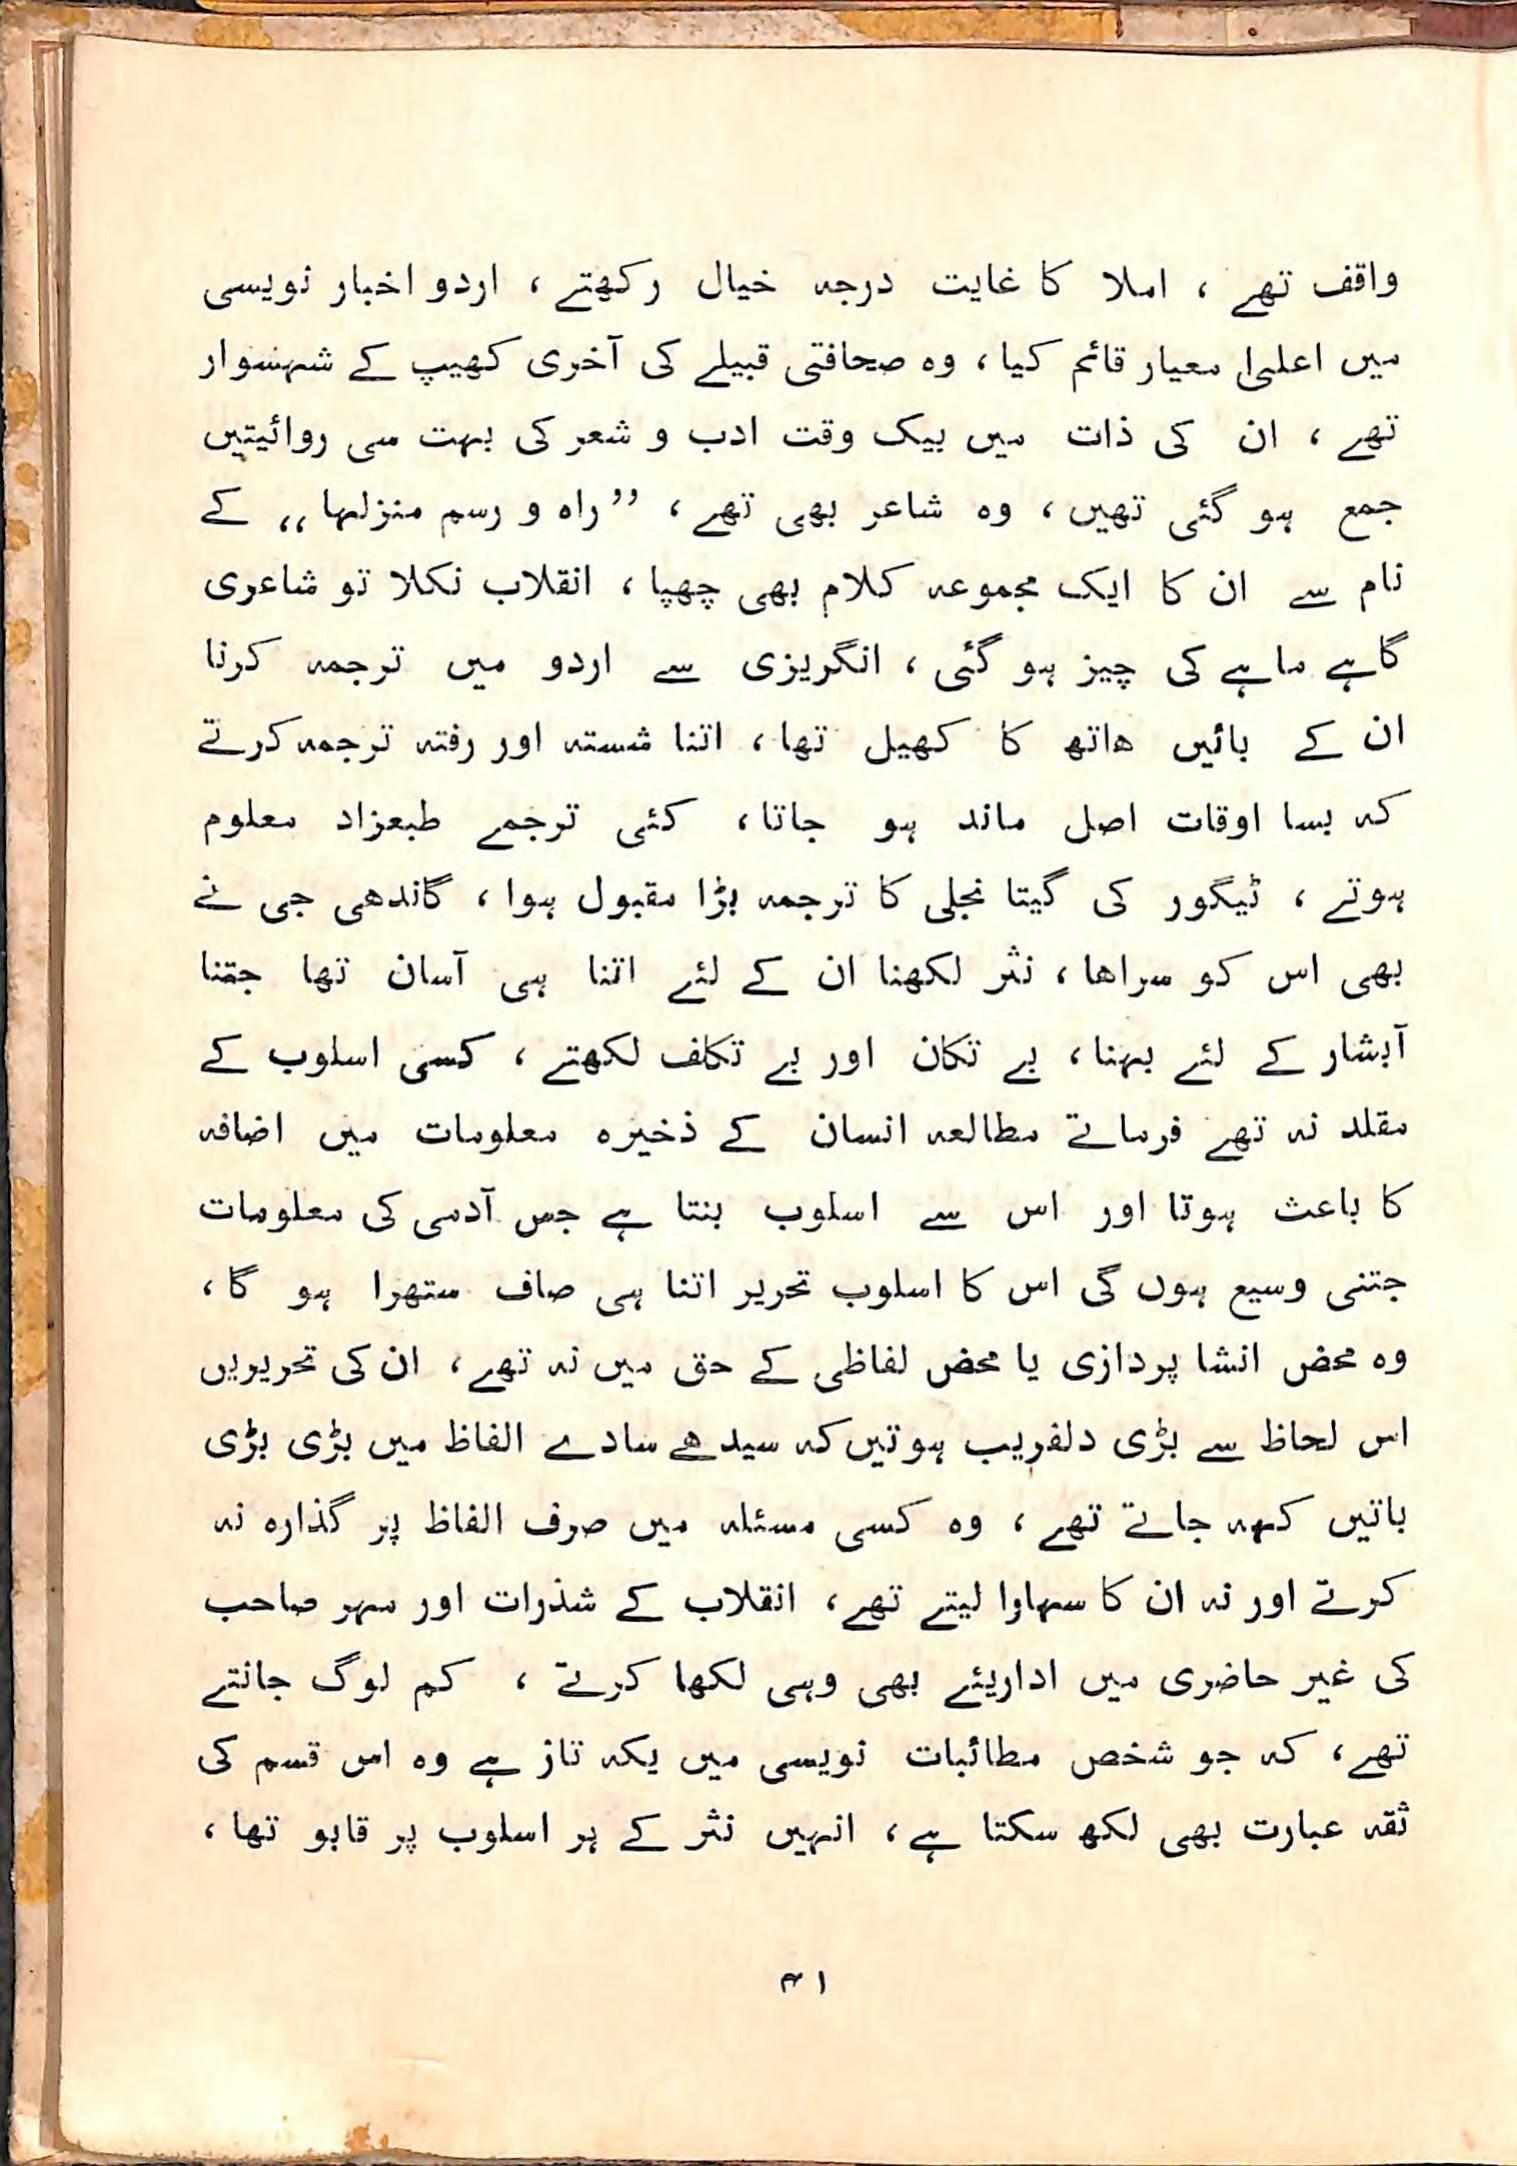 واقف تھے ، املا کا غایت درجہ خیال رکھتے ، اردو اخبار نویسی
میں اعلیٰ معیار قائم کیا ، وہ صحافتی قبیلے کی آخری کھیپ کے شہسوار
تھے ، ان کی ذات میں بیک وقت ادب و شعر کی بہت سی روائیتیں
جمع ہو گئی تھیں ، وہ شاعر بھی تھے ، ”راہ و رسم منزلہا،، کے
نام سے ان کا ایک مجموعہ کلام بھی چھپا ، انقلاب نکلا تو شاعری
گاہے ماہے کی چیز ہو گئی ، انگریزی سے اردو میں ترجمہ کرنا
ان کے بائیں ھاتھ کا کھیل تھا ، اتنا شستہ اور رفتہ ترجمہ کرتے
کہ بسا اوقات اصل ماند ہو جاتا ، کئی ترجمے طبعزاد معلوم
ہوتے ، ٹیگور کی گیتا نجلی کا ترجمہ بڑا مقبول ہوا ، گاندھی جی نے
بھی اس کو سراھا ، نثر لکھنا ان کے لئے اتنا ہی آسان تھا جتنا
آبشار کے لئے بہنا ، بے تکان اور بے تکلف لکھتے ، کسی اسلوب کے
مقلد نہ تھے فرماتے مطالعہ انسان کے ذخیرہ معلومات میں اضافہ
کا باعث ہوتا اور اس سے اسلوب بنتا ہے جس آدمی کی معلومات
جتنی وسیع ہوں گی اس کا اسلوب تحریر اتنا ہی صاف ستھرا ہو گا ،
وہ محض انشا پردازی یا محض لفاظی کے حق میں نہ تھے ، ان کی تحریریں
اس لحاظ سے بڑی دلفریب ہوتیں کہ سیدھے سادے الفاظ میں بڑی بڑی
باتیں کہہ جاتے تھے ، وہ کسی مسئلہ میں صرف الفاظ پر گذارہ نہ
کرتے اور نہ ان کا سہارا لیتے تھے ، انقلاب کے شذرات اور مہر صاحب
کی غیر حاضری میں اداریئے بھی وہی لکھا کرتے ، کم لوگ جانتے
تھے ، کہ جو شخص مطائبات نویسی میں یکہ تاز ہے وہ اس قسم کی
ثقہ عبارت بھی لکھ سکتا ہے ، انہیں نثر کے ہر اسلوب پر قابو تھا ،
۴۱